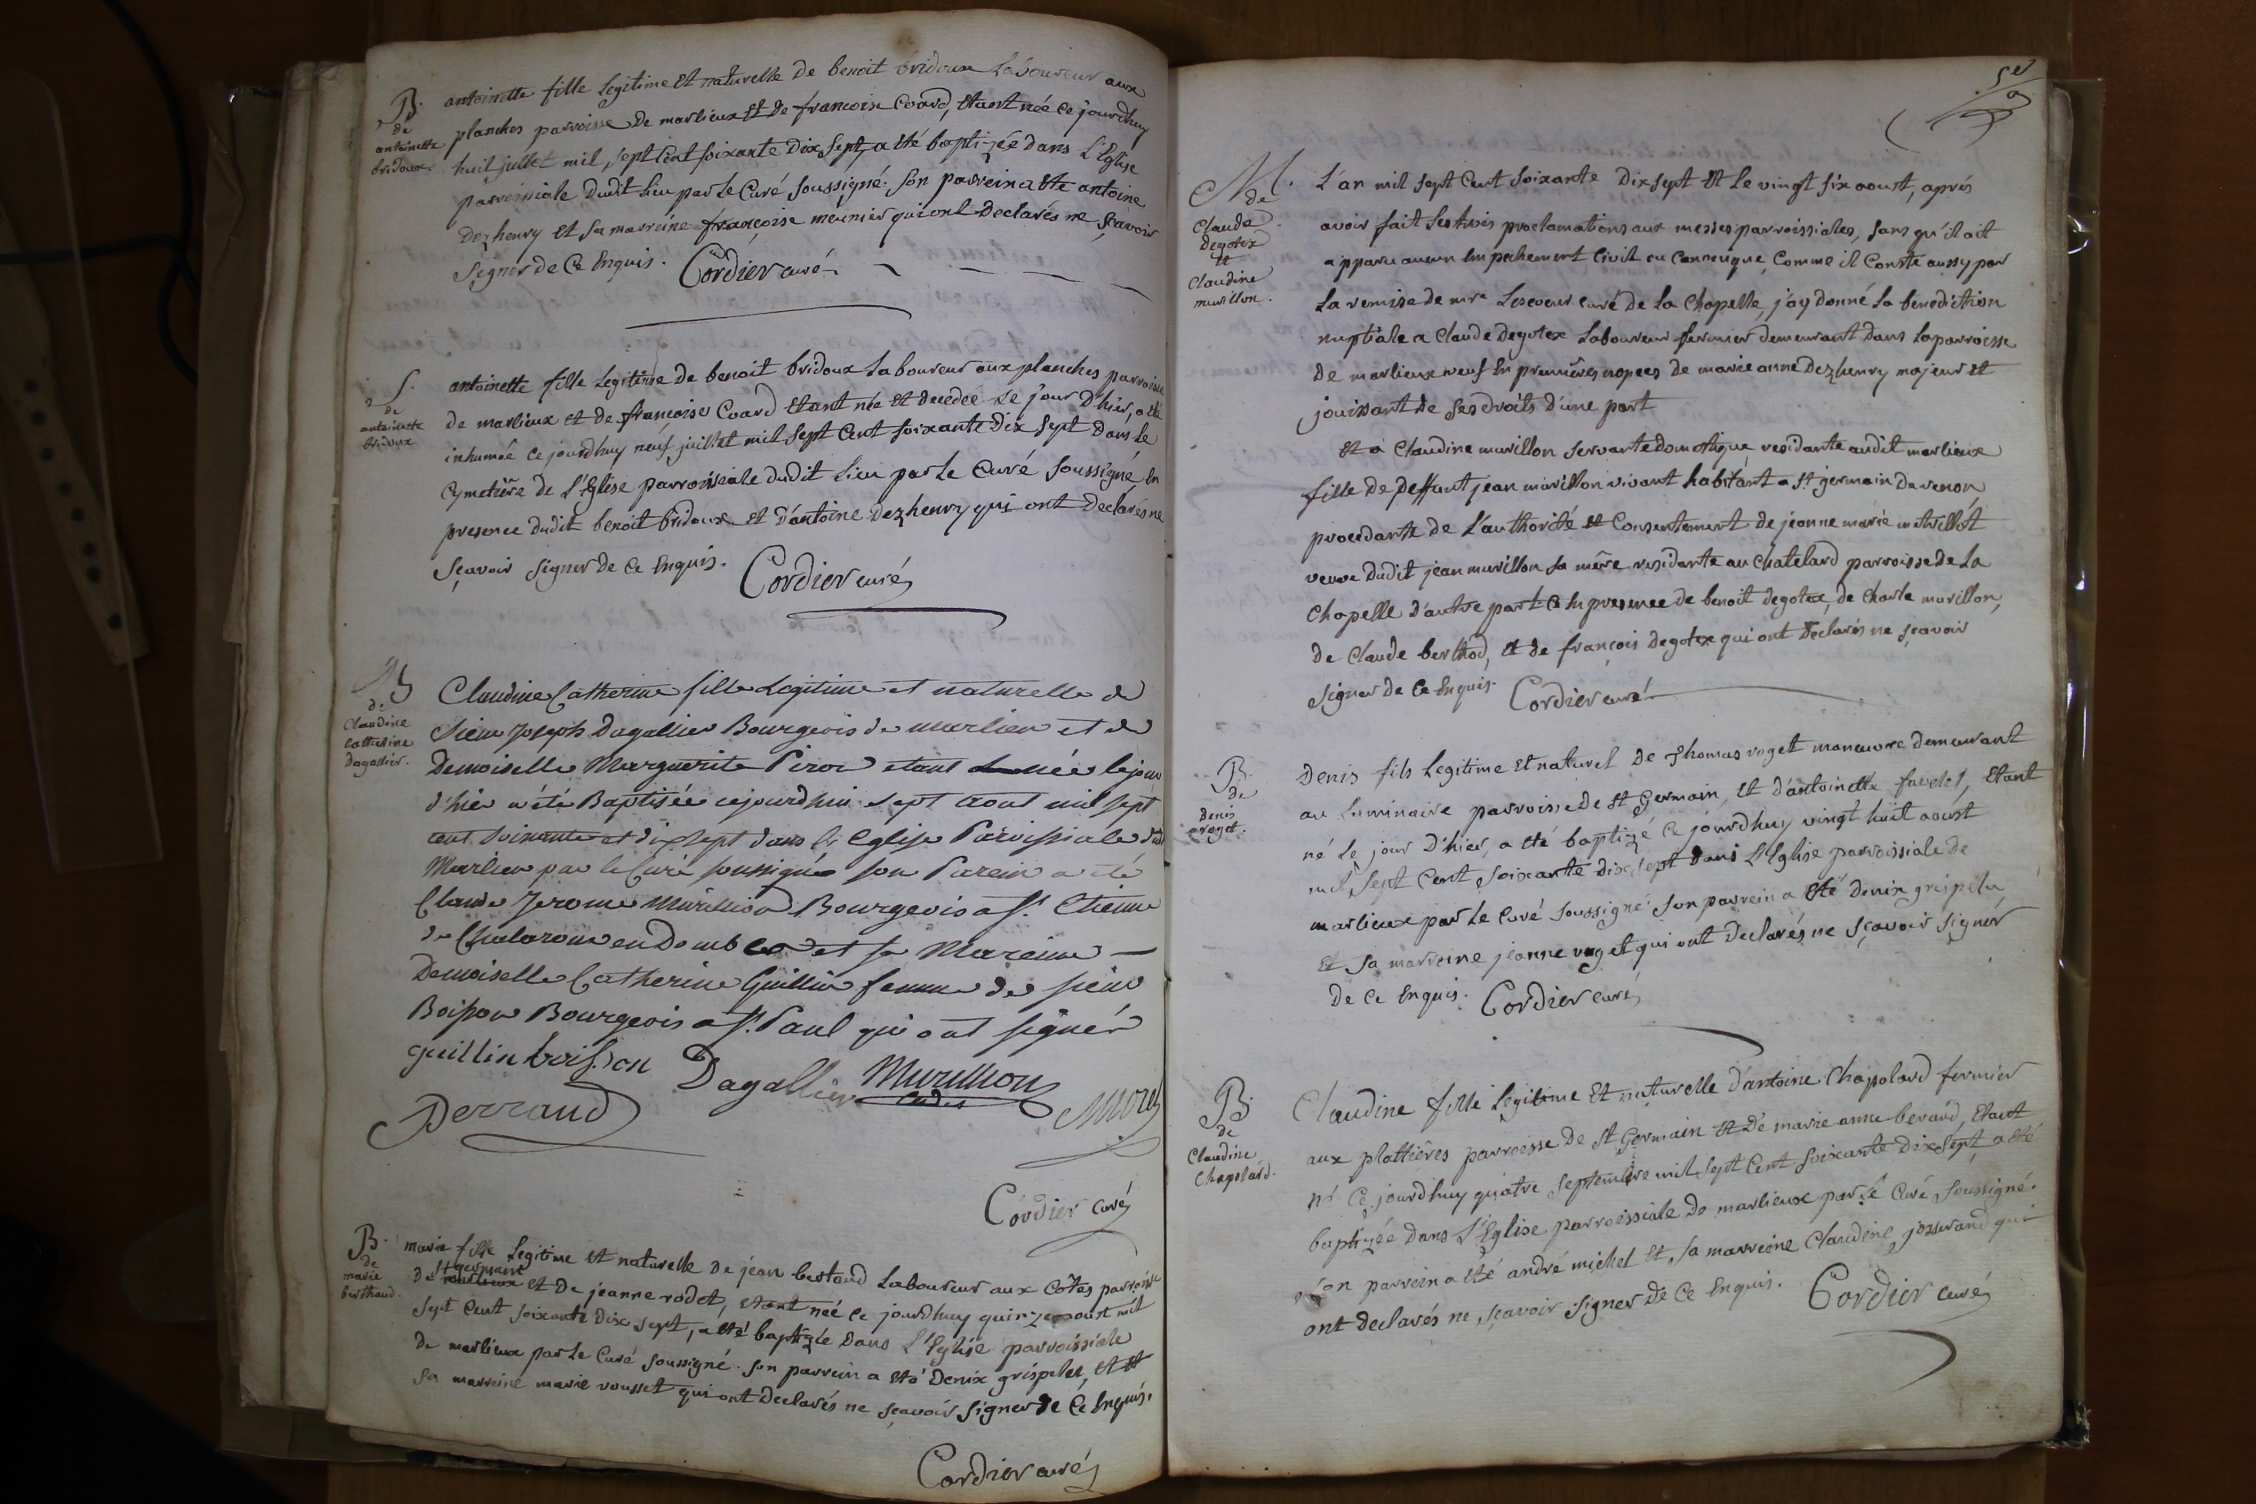 B.
de
antoinette
bridoux.
antoinette fille legitime et naturelle de benoit bridoux laboureur aux
planches parroisse de marlieux et de francoise Coard, etant née ce jourdhuy
huit juillet mil sept cent soixante dix sept, a été baptizée dans L'Eglise
parroissiale dudit lieu par le Curé soussigné. son parrein a été antoine
Dezhenry et sa marreine françoise meunier qui ont declarés ne sçavoir
signer de ce enquis. Cordier curé
S.
de
antoinette
bridoux
antoinette fille legitime de benoit bridoux laboureur aux planches parroisse
de marlieux et de françoise Coard etant née et decedée le jour d'hier, a été
inhumée ce jourdhuy neuf juillet mil sept cent soixante dix sept dans le
cymetière de L'Eglise parroissiale dudit lieu par le Curé soussigné en
presence dudit benoit bridoux et d'antoine dezhenry qui ont declarés ne
sçavoir signer de ce enquis. Cordier curé
B
de
Claudine
catherine
dagallier.
Claudine Catherine fille Legitime et naturelle de
sieur Joseph Dagallier Bourgeois de marlieu et de
Demoiselle Marguerite etant née le jour
d'hier a été Baptisée cejourdhui sept aout mil sept
cent soixante et dix sept dans l'Eglise Paroissiale dudit
Marlieu par le Curé soussigné son Parein a été
Claude Jerome Murillion Bourgeois a St. Etienne
de Chalarone en Dombes et sa Mareine
Demoiselle Catherine Guillin femme de sieur
Boisson Bourgeois a St. Paul qui ont signér
guillin boisson Dagallier Murillion
Perraud cadet Morel
Cordier curé
B.
de
marie
berthaud.
marie fille legitime et naturelle de jean bertaud laboureur aux Côtes parroisse
de St germain et de jeanne rodet, etant née ce jourdhuy quinze aoust mil
sept cent soixante dix sept, a été baptizée dans L'Eglise parroissiale
de marlieux par le Curé soussigné. son parrein a été Denix grispelu, et
sa marreine marie rousset qui ont declarés ne sçavoir signer de ce enquis.
Cordier curé
M.
de
Claude
degotex
et
Claudine
murillon.
L'an mil sept cent soixante dix sept et le vingt six aoust, aprés
avoir fait les trois proclamations aux messes parroissiales, sans qu'il ait
apparu aucun empechement civil ou canonique, comme il conste aussy par
la remise de mre Lescoeur curé de la Chapelle, j'ay donné la benediction
nuptiale a Claude Degotex laboureur fermier demeurant dans la parroisse
de marlieux veuf en premières nopces de marie anne Dezhenry majeur et
jouissant de ses droits d'une part
et a Claudine murillon servante domestique residante audit marlieux
fille de deffunt jean murillon vivant habitant a St germain de renon
procedante de l'authorité et consentement de jeanne marie
veuve dudit jean murillon sa mère residante au Chatelard parroisse de la
Chapelle d'autre part en presence de benoit degotex, de Charle murillon,
de Claude berthod, et de françois degotex qui ont declarés ne sçavoir
signer de ce enquis. Cordier curé
B.
de
denis
voget.
Denis fils legitime et naturel de thomas voget maneuvre demeurant
au Luminaire parroisse de St Germain, et d'antoinette etant
né le jour d'hier, a été baptizé ce jourdhuy vingt huit aoust
mil sept cent soixante dix sept dans L'Eglise parroissiale de
marlieux par le Curé soussigné. son parrein a été Denix grispelu
et sa marreine jeanne voget qui ont declarés ne sçavoir signer
de ce enquis. Cordier curé
B.
de
Claudine
Chapolard.
Claudine fille legitime et naturelle d'antoine Chapolard fermier
aux plattières parroisse de St Germain et de marie anne berard, etant
né ce jourdhuy quatre septembre mil sept cent soixante dix sept, a été
baptizée dans L'Eglise parroissiale de marlieux par le Curé soussigné.
son parrein a été andré michel et sa marreine Claudine josserand qui
ont declarés ne sçavoir signer de ce enquis. Cordier curé